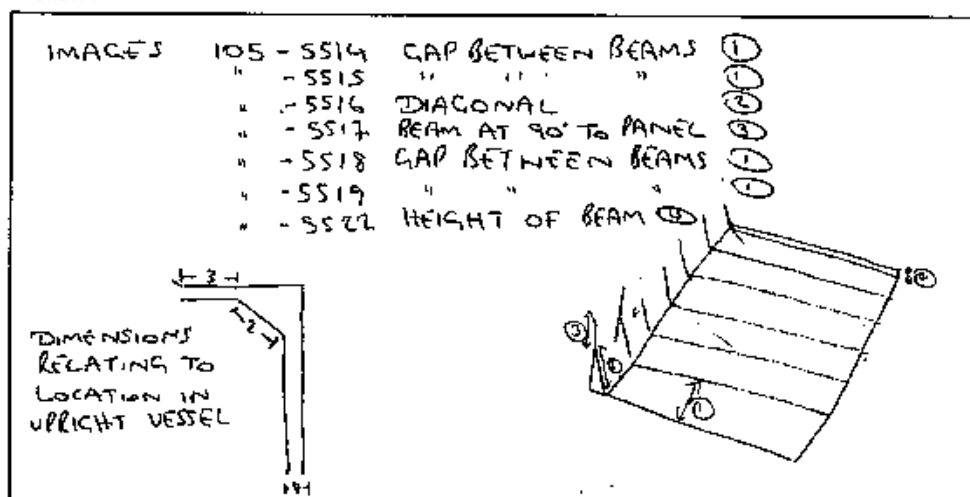 IMAGES 105-5514 GAP BETWEEN BEAMS ①
" -5515 " " " ①
" -5516 DIAGONAL ②
" -5517 BEAM AT 90° TO PANEL ③
" -5518 GAP BETWEEN BEAMS ①
" -5519 " " " ①
" -5522 HEIGHT OF BEAM ④
3
2
DIMENSIONS
RELATING TO
LOCATION IN
UPRIGHT VESSEL
③
①